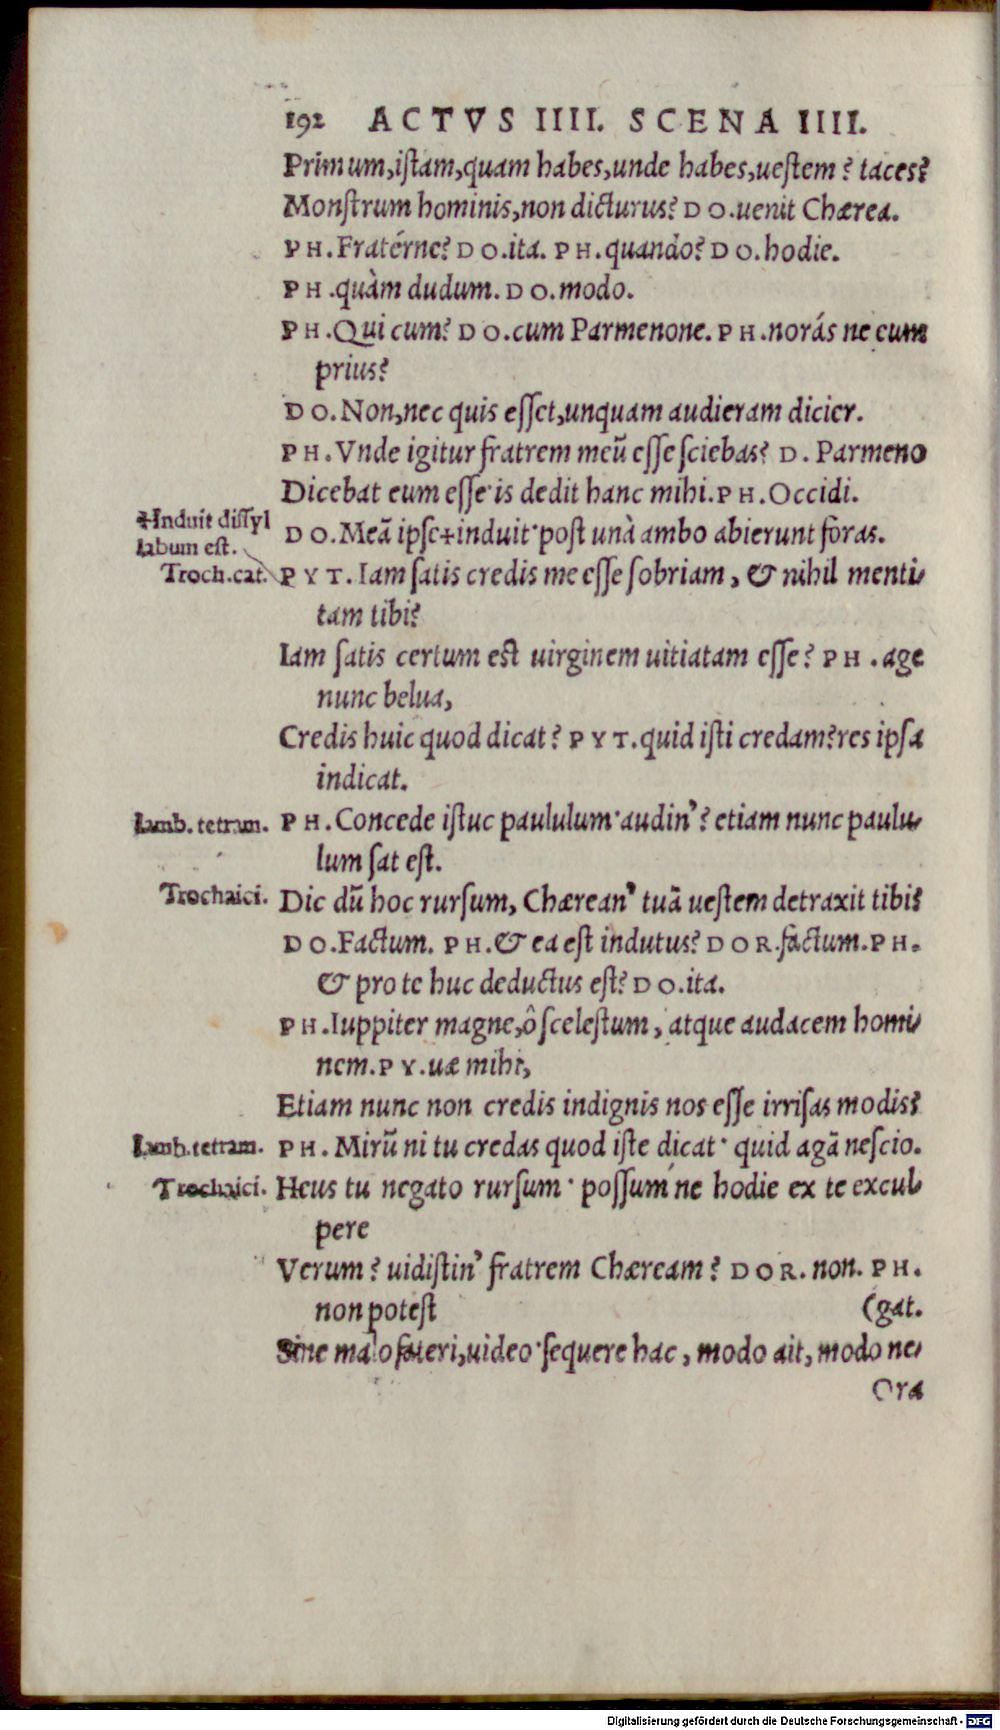 192 ACTVS IIII. SCENA IIII.
Primum,istam,quam habes,unde habes,uestem? taces?
Monstrum hominis,non dicturus? DO.uenit Chærea.
PH.Fratérne? DO.ita. PH.quando? DO.hodie.
PH.quàm dudum. DO.modo.
PH.Qui cum? DO.cum Parmenone. PH.norás ne eum
prius?
DO.Non,nec quis esset,unquam audieram dicier.
PH.Vnde igitur fratrem meũ esse sciebas? D. Parmeno
Dicebat eum esse·is dedit hanc mihi.PH.Occidi.
+Induit dissyl
labum est.
DO.Meã ipse+induit·post unà ambo abierunt foras.
Troch.cat. PYT.Iam satis credis me esse sobriam, & nihil menti-
tam tibi?
Iam satis certum est uirginem uitiatam esse? PH.age
nunc belua,
Credis huic quod dicat? PYT.quid isti credam?res ipsa
indicat.
Iamb.tetram. PH.Concede istuc paululum·audin'? etiam nunc paulu-
lum sat est.
Trochaici. Dic dũ hoc rursum, Chærean' tuã uestem detraxit tibi?
DO.Factum. PH.& ea est indutus? DOR.factum.PH.
& pro te huc deductus est? DO.ita.
PH.Iuppiter magne,ô scelestum, atque audacem homi-
nem.PY.uæ mihi,
Etiam nunc non credis indignis nos esse irrisas modis?
Iamb.tetram. PH. Mirũ ni tu credas quod iste dicat· quid agã nescio.
Trochaici. Heus tu negato rursum· possúm ne hodie ex te excul-
pere
Verum? uidistin' fratrem Chæream? DOR. non. PH.
non potest (gat.
Sine malo fateri,uideo·sequere hac, modo ait, modo ne-
Ora
Digitalisierung gefördert durch die Deutsche Forschungsgemeinschaft - DFG